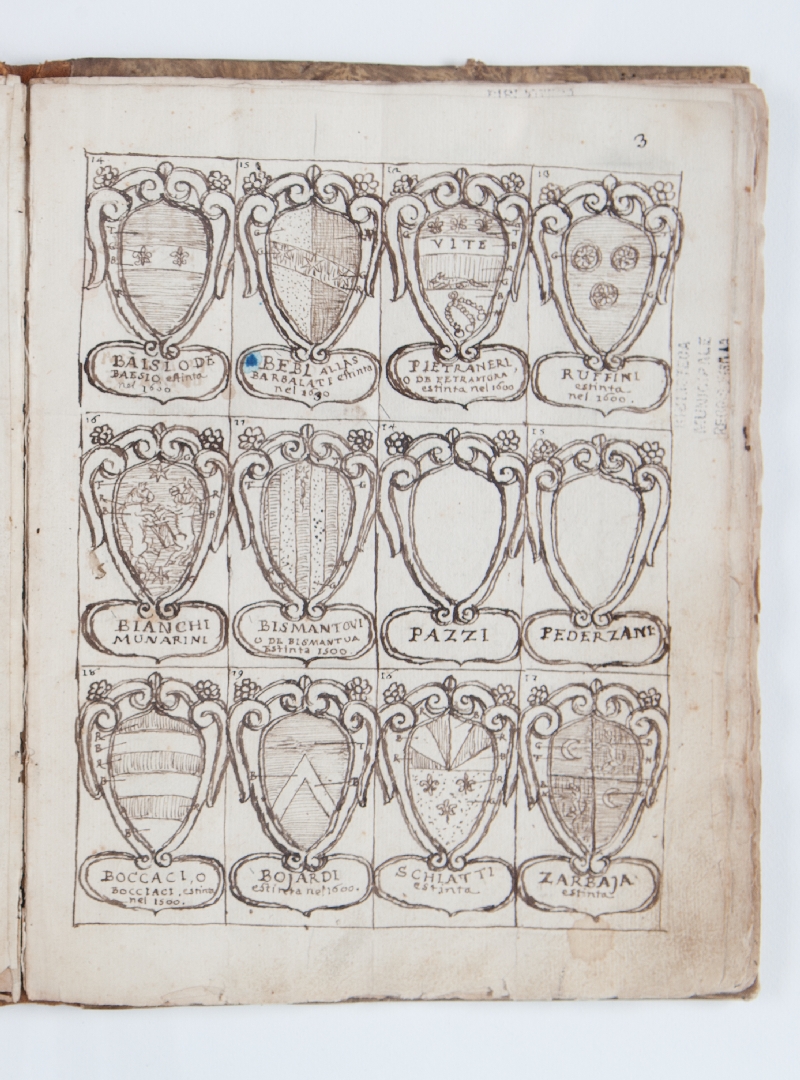 3
14
BAISI, O DE
BAESIO estinta
nel 1600
15
BEBI ALIAS
BARBALATI estinta
nel 1630
12
VITE
PIETRANERI,
O DE PETRANIGRA,
estinta nel 1600
13
RUFFINI
estinta
nel 1600.
16
BIANCHI
MUNARINI
17
BISMANTOVI
O DE BISMANTUA
Estinta 1500
14
PAZZI
15
PEDERZANI
18
BOCCACI, O
BOCCIACI, estinta
nel 1500.
19
BOJARDI
estinta nel 1600.
16
SCHIATTI
estinta
17
ZARBAJA
estinta
MUNICIPALE